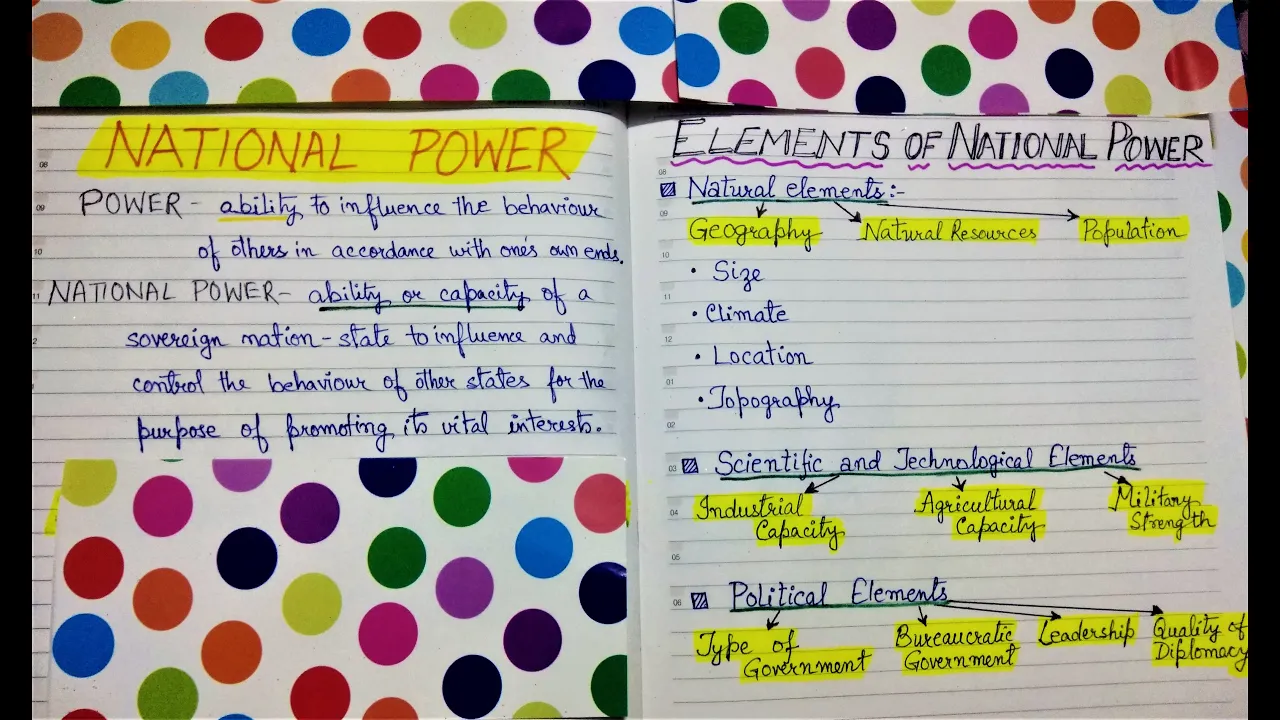 NATIONAL POWER
POWER - ability to influence the behaviour
of others in accordance with one's own ends.
NATIONAL POWER - ability or capacity of a
sovereign nation-state to influence and
control the behaviour of other states for the
purpose of promoting its vital interests.
08
09
10
11
2
1
ELEMENTS OF NATIONAL POWER
Natural elements:-
Geography Natural Resources Population
• Size
• Climate
• Location
• Topography
Scientific and Technological Elements
Industrial Agricultural Military
Capacity Capacity Strength
Political Elements
Type of Bureaucratic Leadership Quality of
Government Government Diplomacy
08
09
10
11
12
01
02
03
04
05
06